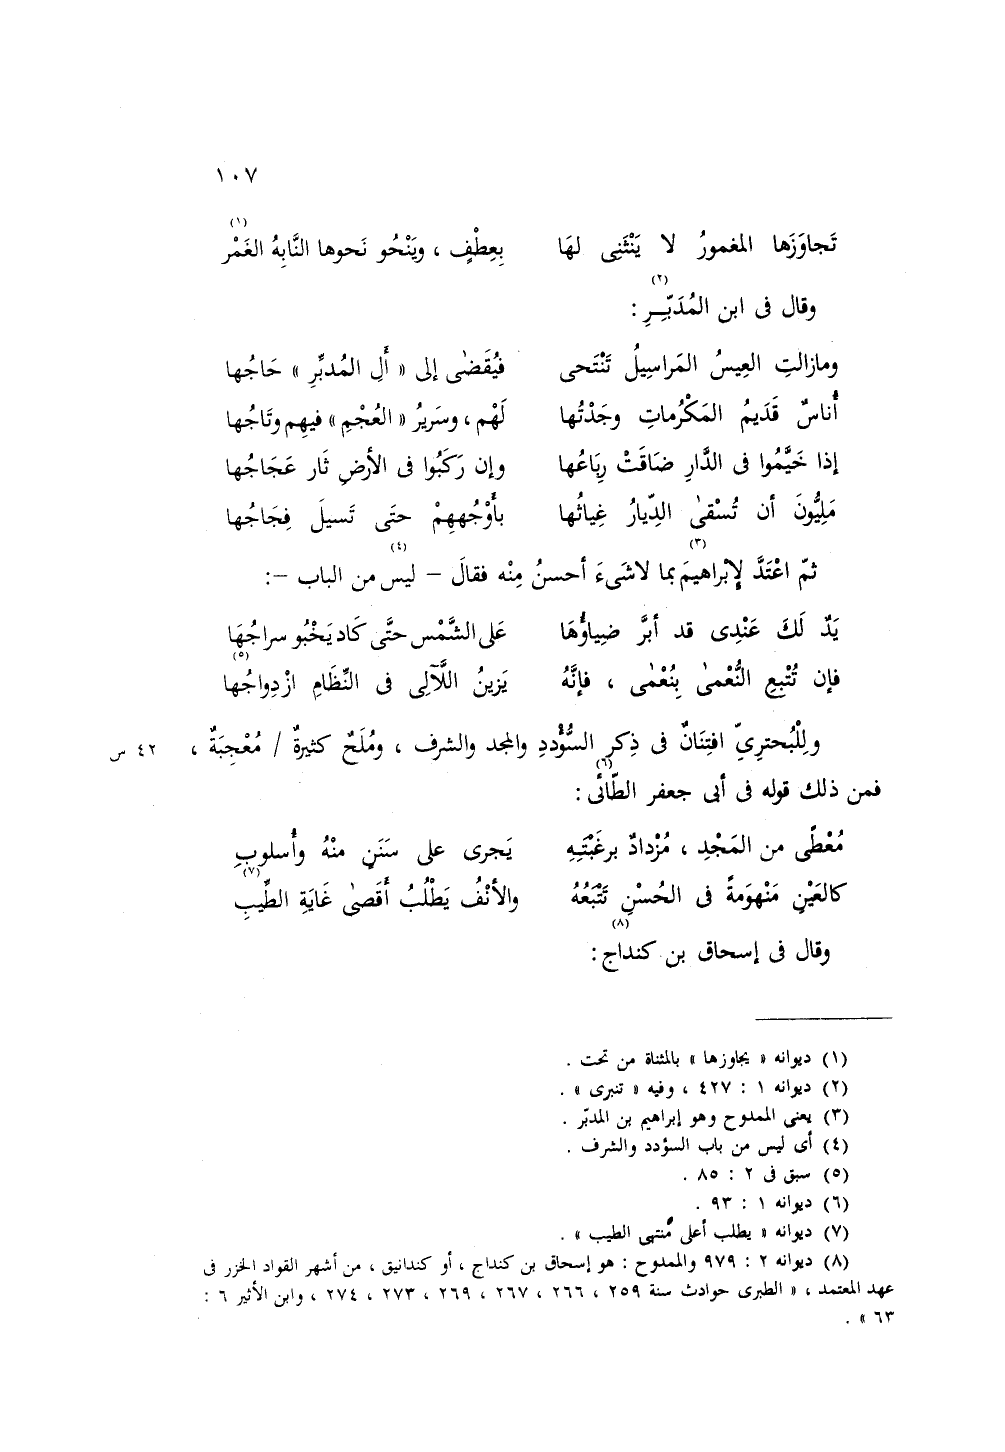 ١٠٧
تَجاوَزَها المغمورُ لا يَنْثَنِى لهَا بِعِطْفٍ ، ويَنْحُو نَحوها النَّابِهُ الغَمْر(١)
وقال فى ابن المُدَبِّرِ(٢) :
ومازالتِ العِيسُ المَراسِيلُ تَنْتَحى فيُقَضىٰ إلى « أَلِ المُدبِّرِ » حَاجُها
أُناسٌ قَدَيمُ المَكْرُماتِ وجَدْتُها لَهْم ، وسَريرُ « العُجْمِ » فيهِم وتَاجُها
إذا خَيَّمُوا فى الدَّارِ ضَاقَتْ رِبَاعُها وإن رَكَبُوا فى الأرضِ ثَار عَجَاجُها
مَلِيُّونَ أن تُسْقىٰ الدِّيارُ غِياثُها بأَوْجُههِمْ حتَى تَسيلَ فِجَاجُها
ثمّ اعْتَدَّ لإبْراهيمَ(٣) بما لاشَىءَ أحسنُ مِنْه فقالَ – ليس من الباب(٤) –:
يَدٌ لَكَ عَنْدِى قد أبرَّ ضِياؤُهَا عَلى الشَّمْس حتَّى كَاد يَخْبُو سراجُهَا
فإن تُتْبِعِ النُّعْمىٰ بِنُعْمٰى ، فإنَّهُ يَزينُ اللَّآلِى فى النِّظَامِ ازْدِواجُها(٥)
ولِلْبُحترِيِّ افتِنَانٌ فى ذِكرِ السُّؤْددِ والمجد والشرف ، ومُلَحٌ كثيرةٌ / مُعْجِبَةٌ ، ٤٢ س
فمن ذلك قوله فى أبى جعفر الطّائى(٦) :
مُعْطًى من المَجْدِ ، مُزْدادٌ برغَبْتَهِ يَجرى على سَنَنٍ منْهُ وأُسلوبِ
كالعَيْنِ مَنْهَومَةً فى الحُسْنِ تَتْبَعُهُ والأنْفُ يَطْلُبُ أَقَصىٰ غَايَةِ الطِّيبِ(٧)
وقال فى إسحاق بن كنداج(٨) :
(١) ديوانه « يجاوزها » بالمثناة من تحت .
(٢) ديوانه ١ : ٤٢٧ ، وفيه « تنبرى » .
(٣) يعنى الممدوح وهو إبراهيم بن المدبّر .
(٤) أى ليس من باب السؤدد والشرف .
(٥) سبق فى ٢ : ٨٥ .
(٦) ديوانه ١ : ٩٣ .
(٧) ديوانه « يطلب أعلى مُنتهى الطيب » .
(٨) ديوانه ٢ : ٩٧٩ والممدوح : هو إسحاق بن كنداج ، أو كندانيق ، من أشهر القواد الخزر فى
عهد المعتمد ، « الطبرى حوادث سنة ٢٥٩ ، ٢٦٦ ، ٢٦٧ ، ٢٦٩ ، ٢٧٣ ، ٢٧٤ ، وابن الأثير ٦ :
٦٣ » .